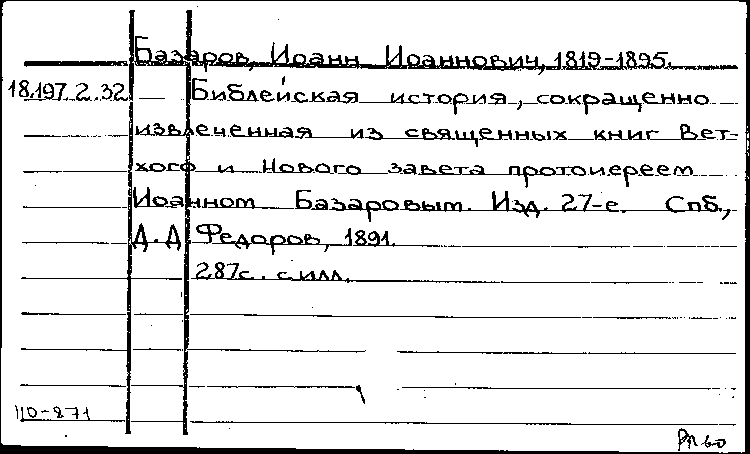 Базаров, Иоанн Иоаннович, 1819-1895.
18.197.2.32 Библейская история, сокращенно
извлеченная из священных книг Вет-
хого и Нового завета протоиереем
Иоанном Базаровым. Изд. 27-е. Спб.,
Д. Д Федоров, 1891.
287с. с илл.
110-271